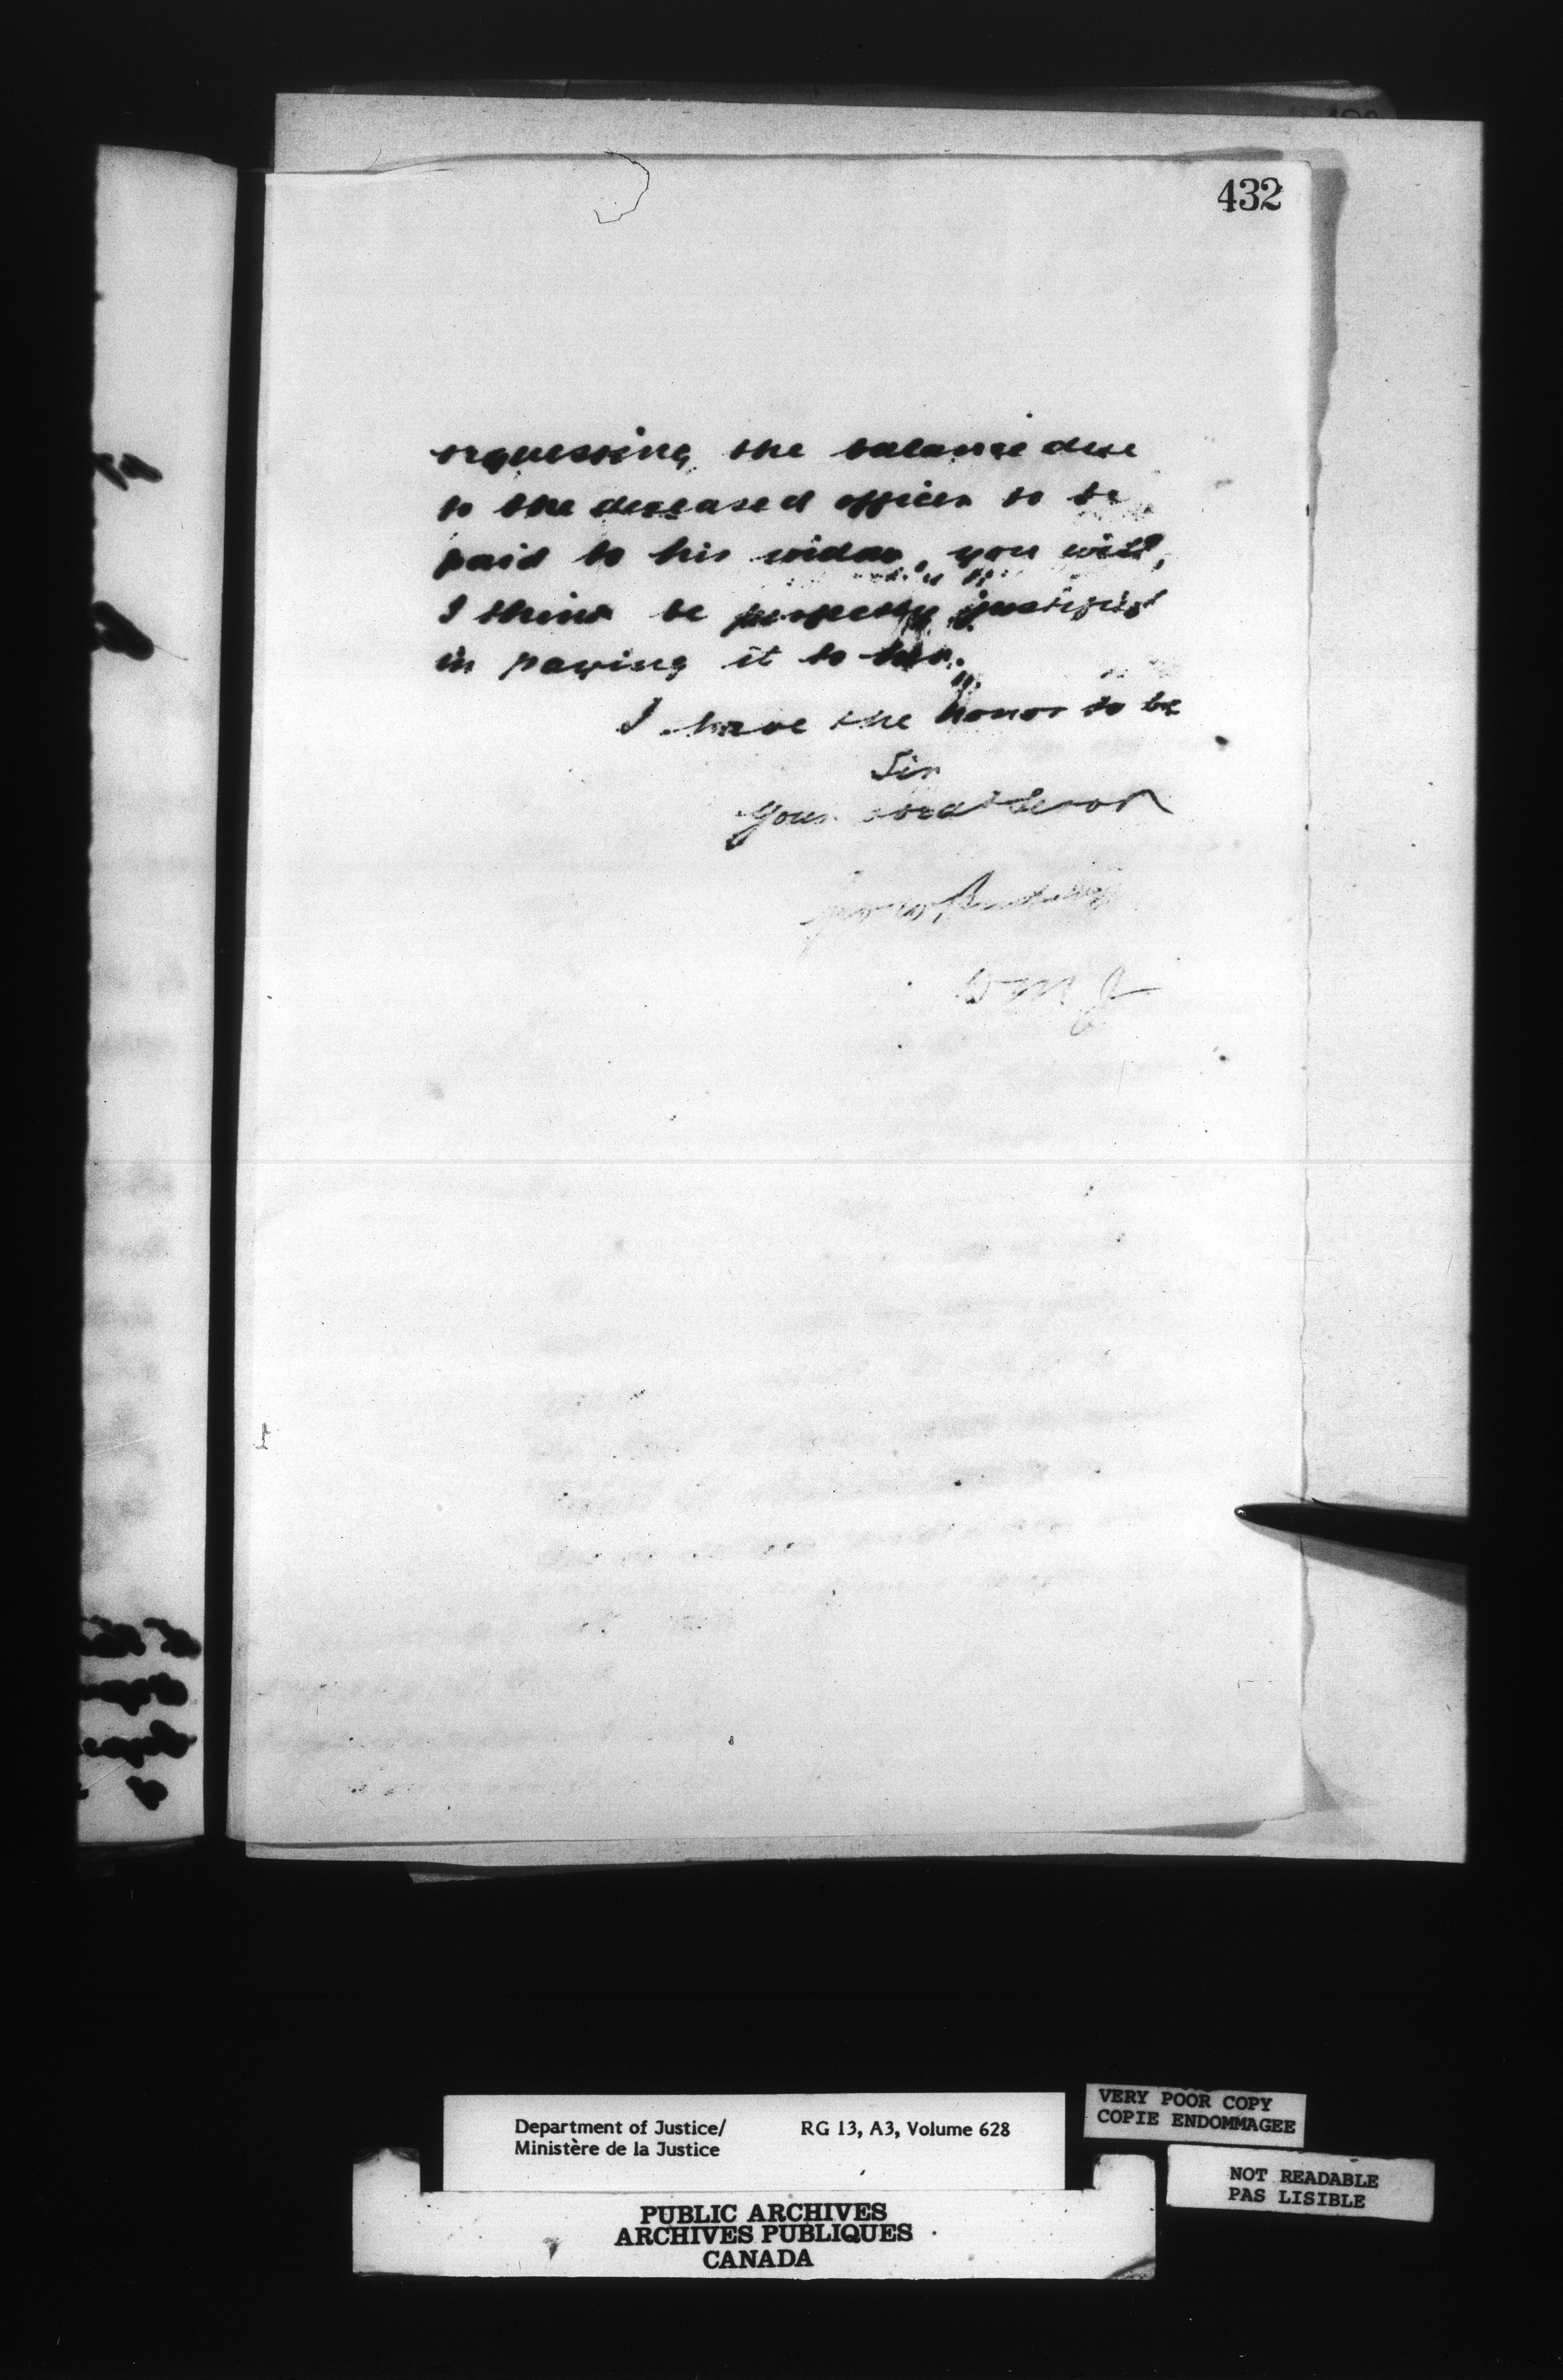 432
requesting the balance due
to the deceased officer to be
paid to his widow, you will,
I think be properly justified
in paying it to her.
I have the honor to be
Sir
Your obedt Servt
D M J
Department of Justice/ RG 13, A3, Volume 628
Ministère de la Justice
VERY POOR COPY
COPIE ENDOMMAGEE
NOT READABLE
PAS LISIBLE
PUBLIC ARCHIVES
ARCHIVES PUBLIQUES
CANADA